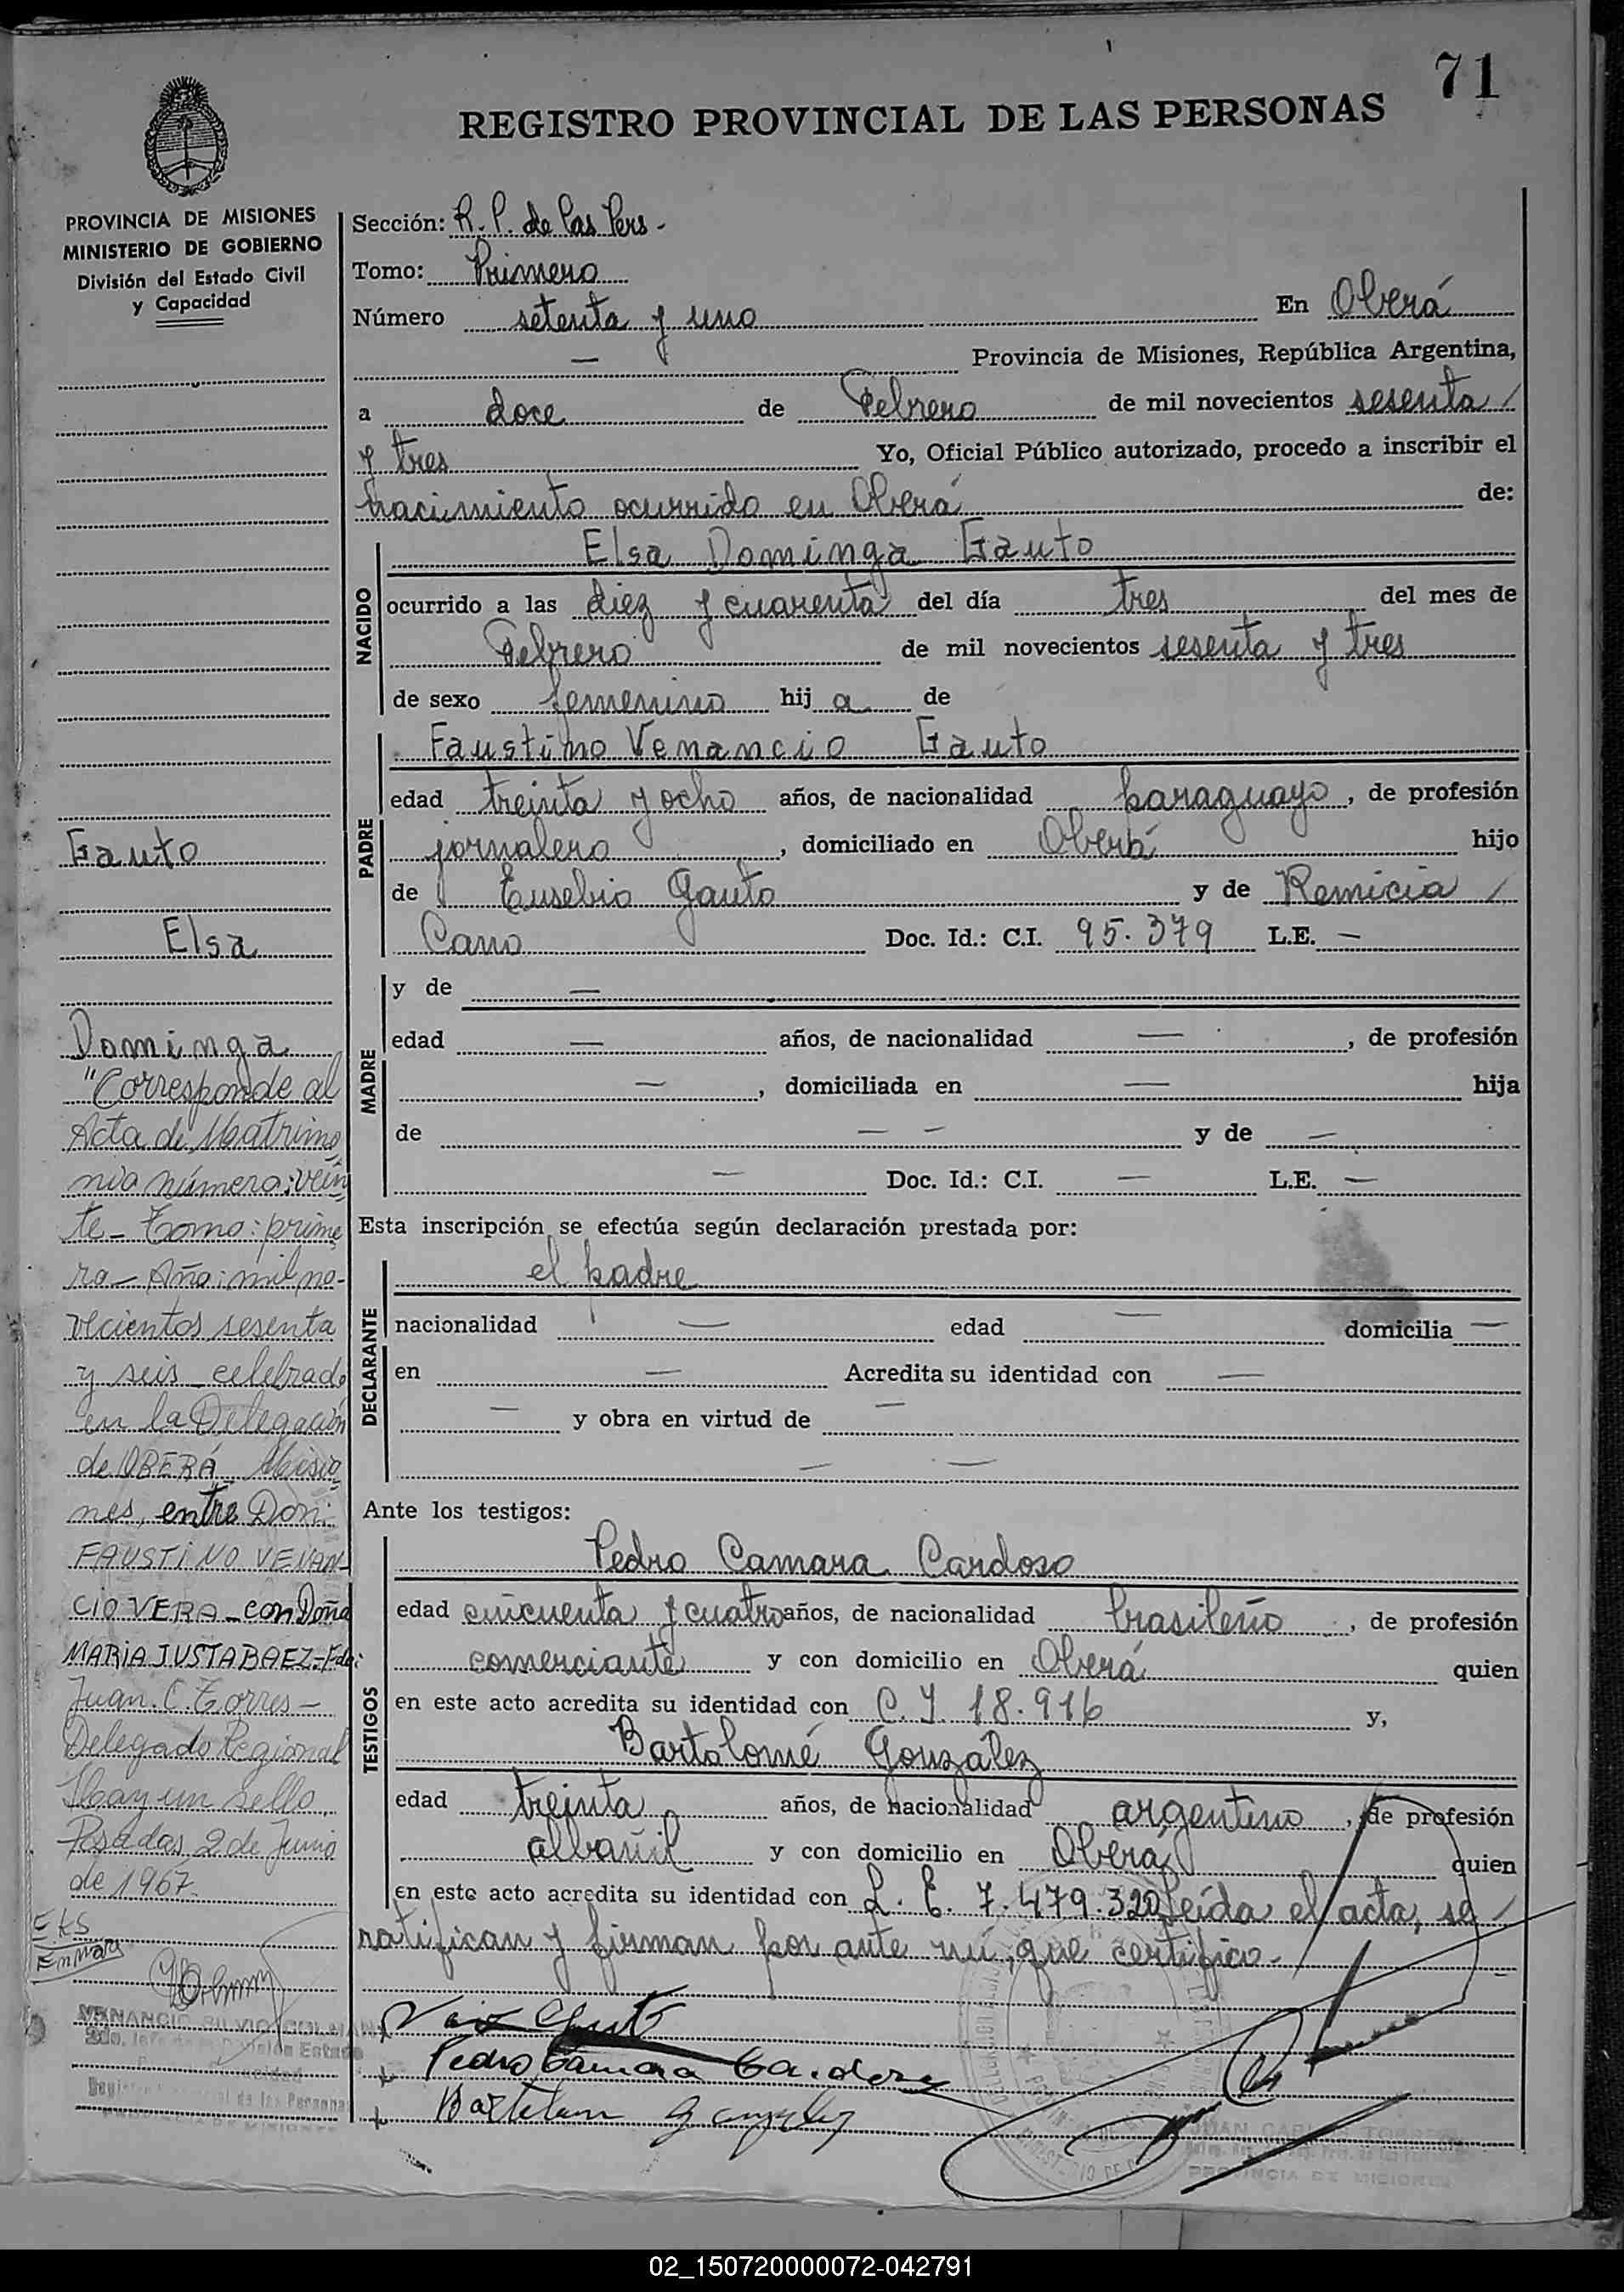 71
REGISTRO PROVINCIAL DE LAS PERSONAS
PROVINCIA DE MISIONES
MINISTERIO DE GOBIERNO
División del Estado Civil
y Capacidad
Sección: R. P. de las Pers -
Tomo: Primero
Número setenta y uno En Oberá
— Provincia de Misiones, República Argentina,
a doce de Febrero de mil novecientos sesenta /
y tres Yo, Oficial Público autorizado, procedo a inscribir el
nacimiento ocurrido en Oberá de:
NACIDO
Elsa Dominga Gauto
ocurrido a las diez y cuarenta del día tres del mes de
Febrero de mil novecientos sesenta y tres
de sexo femenino hij a de
PADRE
Faustino Venancio Gauto
edad treinta y ocho años, de nacionalidad paraguayo, de profesión
jornalero, domiciliado en Oberá hijo
de Eusebio Gauto y de Remicia /
Cano Doc. Id.: C.I. 95.379 L.E. —
MADRE
y de —
edad — años, de nacionalidad —, de profesión
—, domiciliada en — hija
de — — y de —
— Doc. Id.: C.I. — L.E. —
Esta inscripción se efectúa según declaración prestada por:
DECLARANTE
el padre
nacionalidad — edad — domicilia —
en — Acredita su identidad con —
— y obra en virtud de —
— —
Ante los testigos:
TESTIGOS
Pedro Camara Cardoso
edad cincuenta y cuatro años, de nacionalidad brasileño, de profesión
comerciante y con domicilio en Oberá quien
en este acto acredita su identidad con C. I. 18.916 y,
Bartolomé González
edad treinta años, de nacionalidad argentino, de profesión
albañil y con domicilio en Oberá quien
en este acto acredita su identidad con L. E. 7.479.320 Leída el acta, se /
ratifican y firman por ante mí, que certifico -
Pedro Camara Cardoso
Gauto
Elsa
Dominga
"Corresponde al
Acta de Matrimo
nio número: vein
te - Tomo: prime
ro - Año: mil no-
vecientos sesenta
y seis - celebrado
en la Delegación
de OBERÁ - Misio
nes, entre Don:
FAUSTINO VENAN
CIO VERA - con Doña
MARIA JUSTA BAEZ - Fdo:
Juan. C. Torres -
Delegado Regional
Hay un sello.
Posadas, 2 de Junio
de 1967.
VENANCIO SILVIO COLMAN
JUAN CARLOS TORRES
PROVINCIA DE MISIONES
02_150720000072-042791